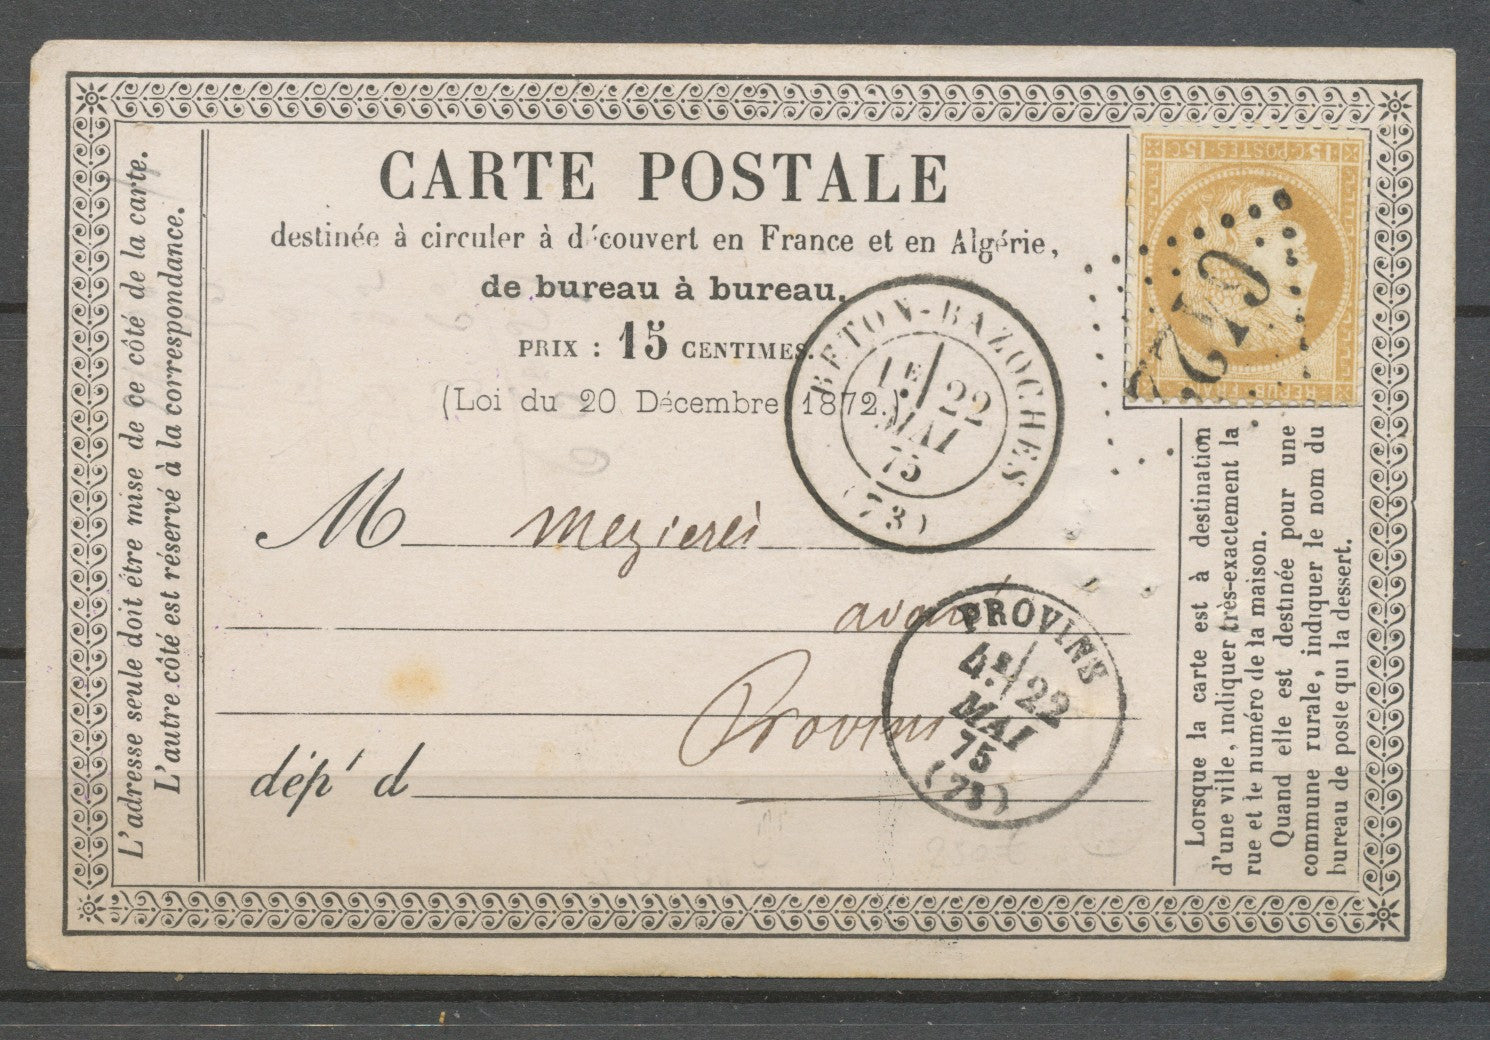 CARTE POSTALE
destinée à circuler à découvert en France et en Algérie,
de bureau à bureau.
PRIX : 15 CENTIMES.
(Loi du 20 Décembre 1872.)
M mezieres
avoué
Provins
dép^t d
L'adresse seule doit être mise de ce côté de la carte.
L'autre côté est réservé à la correspondance.
Lorsque la carte est à destination
d'une ville, indiquer très-exactement la
rue et le numéro de la maison.
Quand elle est destinée pour une
commune rurale, indiquer le nom du
bureau de poste qui la dessert.
BETON-BAZOCHES
1E/22
MAI
75
(73)
PROVINS
4E/22
MAI
75
(73)
15 C POSTES 15 C
REPUB F